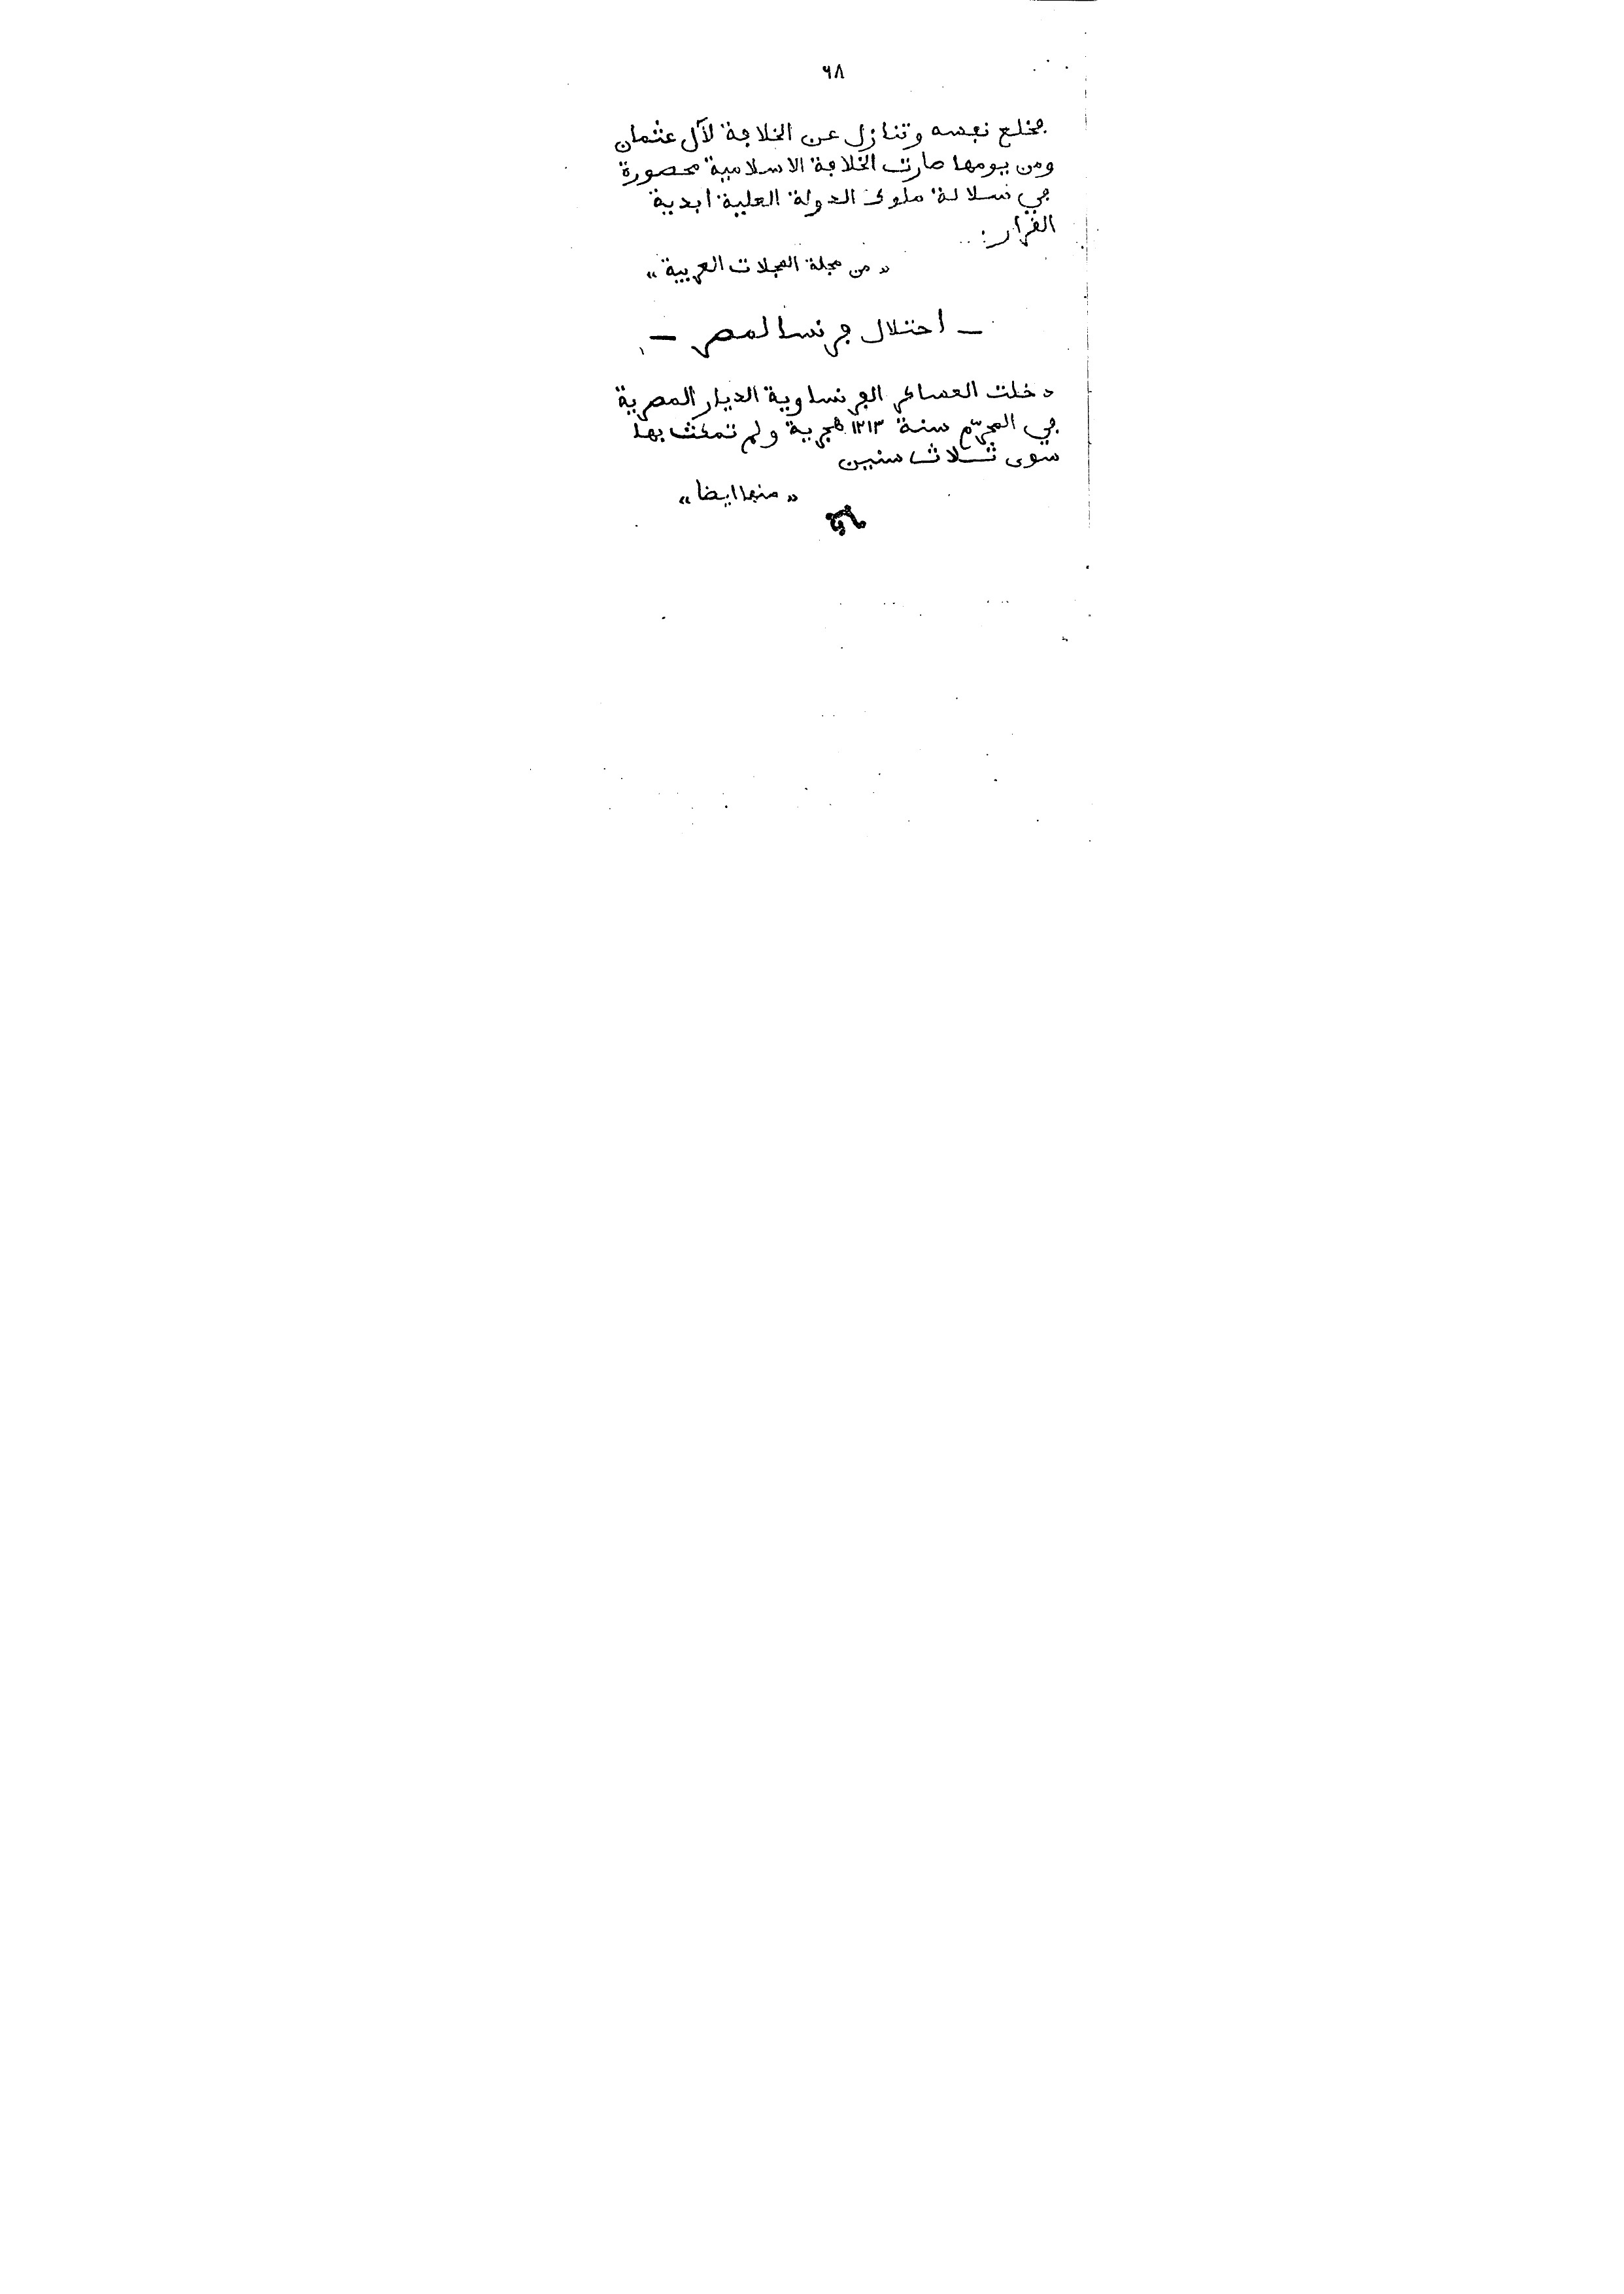 ٦٨
فخلع نفسه وتنازل عن الخلافة لآل عثمان
ومن يومها صارت الخلافة الاسلامية محصورة
في سلالة ملوك الدولة العلية ابدية
القرار:
«من مجلة المجلات العربية»
— احتلال فرنسا لمصر —
دخلت العساكر الفرنساوية الديار المصرية
في المحرّم سنة ١٢١٣ هجرية ولم تمكث بها
سوى ثلاث سنين
«منها ايضا»